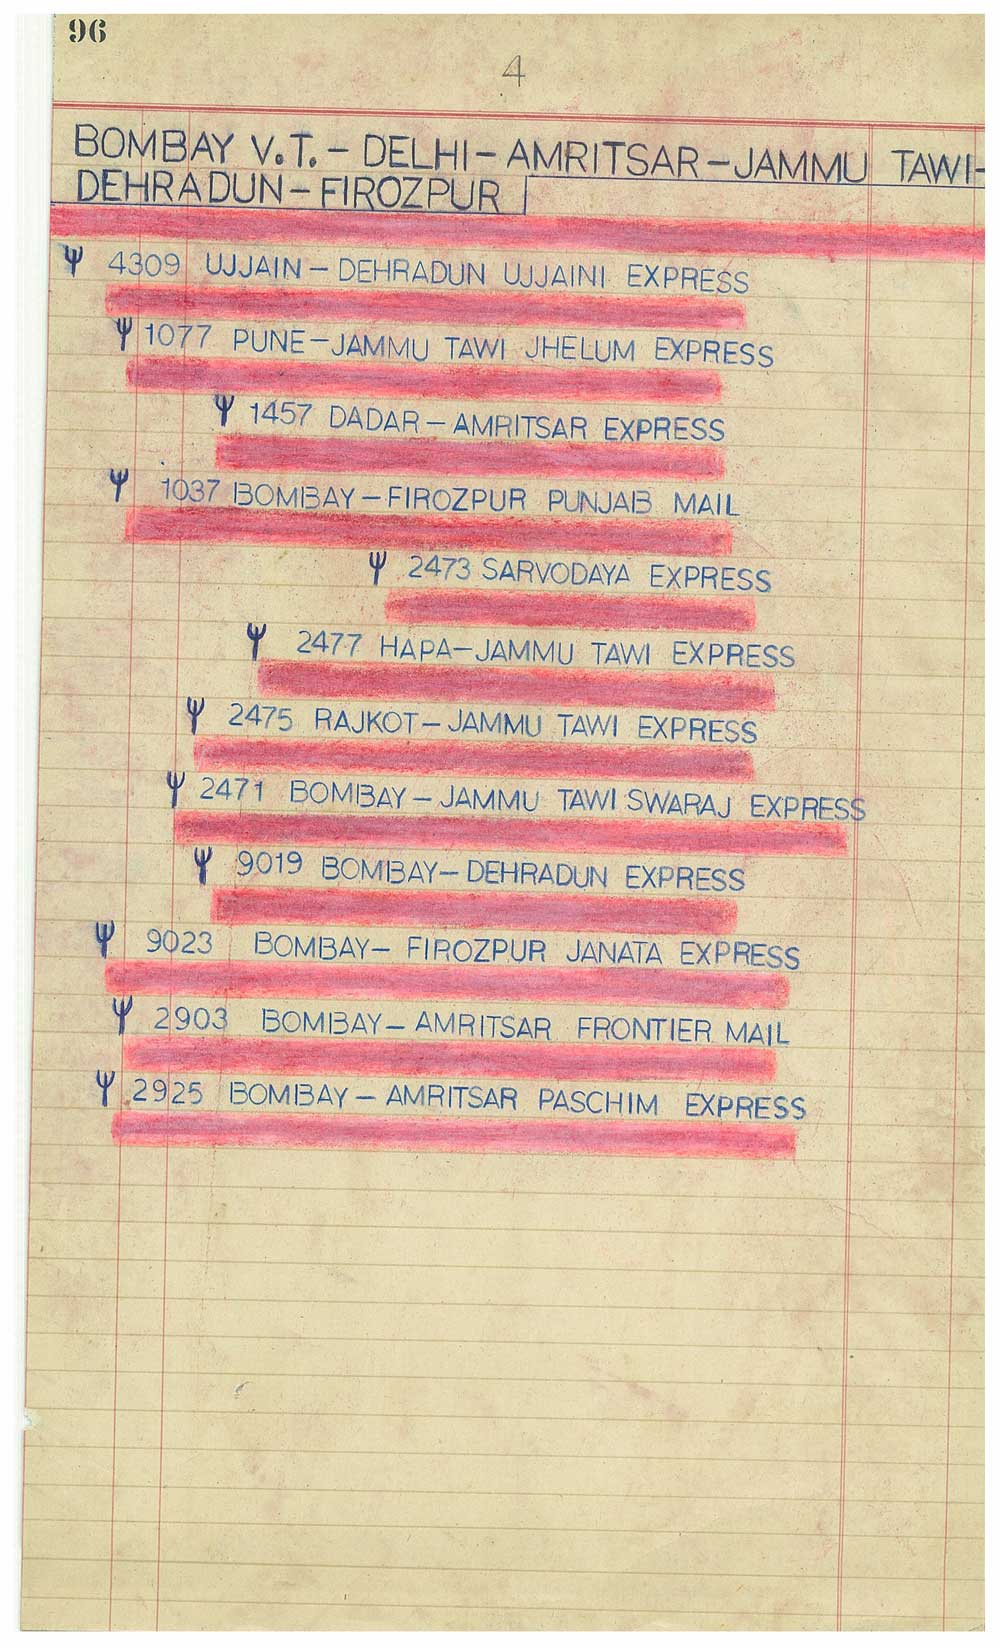 96
4
BOMBAY V.T. – DELHI – AMRITSAR – JAMMU TAWI –
DEHRADUN – FIROZPUR
4309 UJJAIN – DEHRADUN UJJAINI EXPRESS
1077 PUNE – JAMMU TAWI JHELUM EXPRESS
1457 DADAR – AMRITSAR EXPRESS
1037 BOMBAY – FIROZPUR PUNJAB MAIL
2473 SARVODAYA EXPRESS
2477 HAPA – JAMMU TAWI EXPRESS
2475 RAJKOT – JAMMU TAWI EXPRESS
2471 BOMBAY – JAMMU TAWI SWARAJ EXPRESS
9019 BOMBAY – DEHRADUN EXPRESS
9023 BOMBAY – FIROZPUR JANATA EXPRESS
2903 BOMBAY – AMRITSAR FRONTIER MAIL
2925 BOMBAY – AMRITSAR PASCHIM EXPRESS